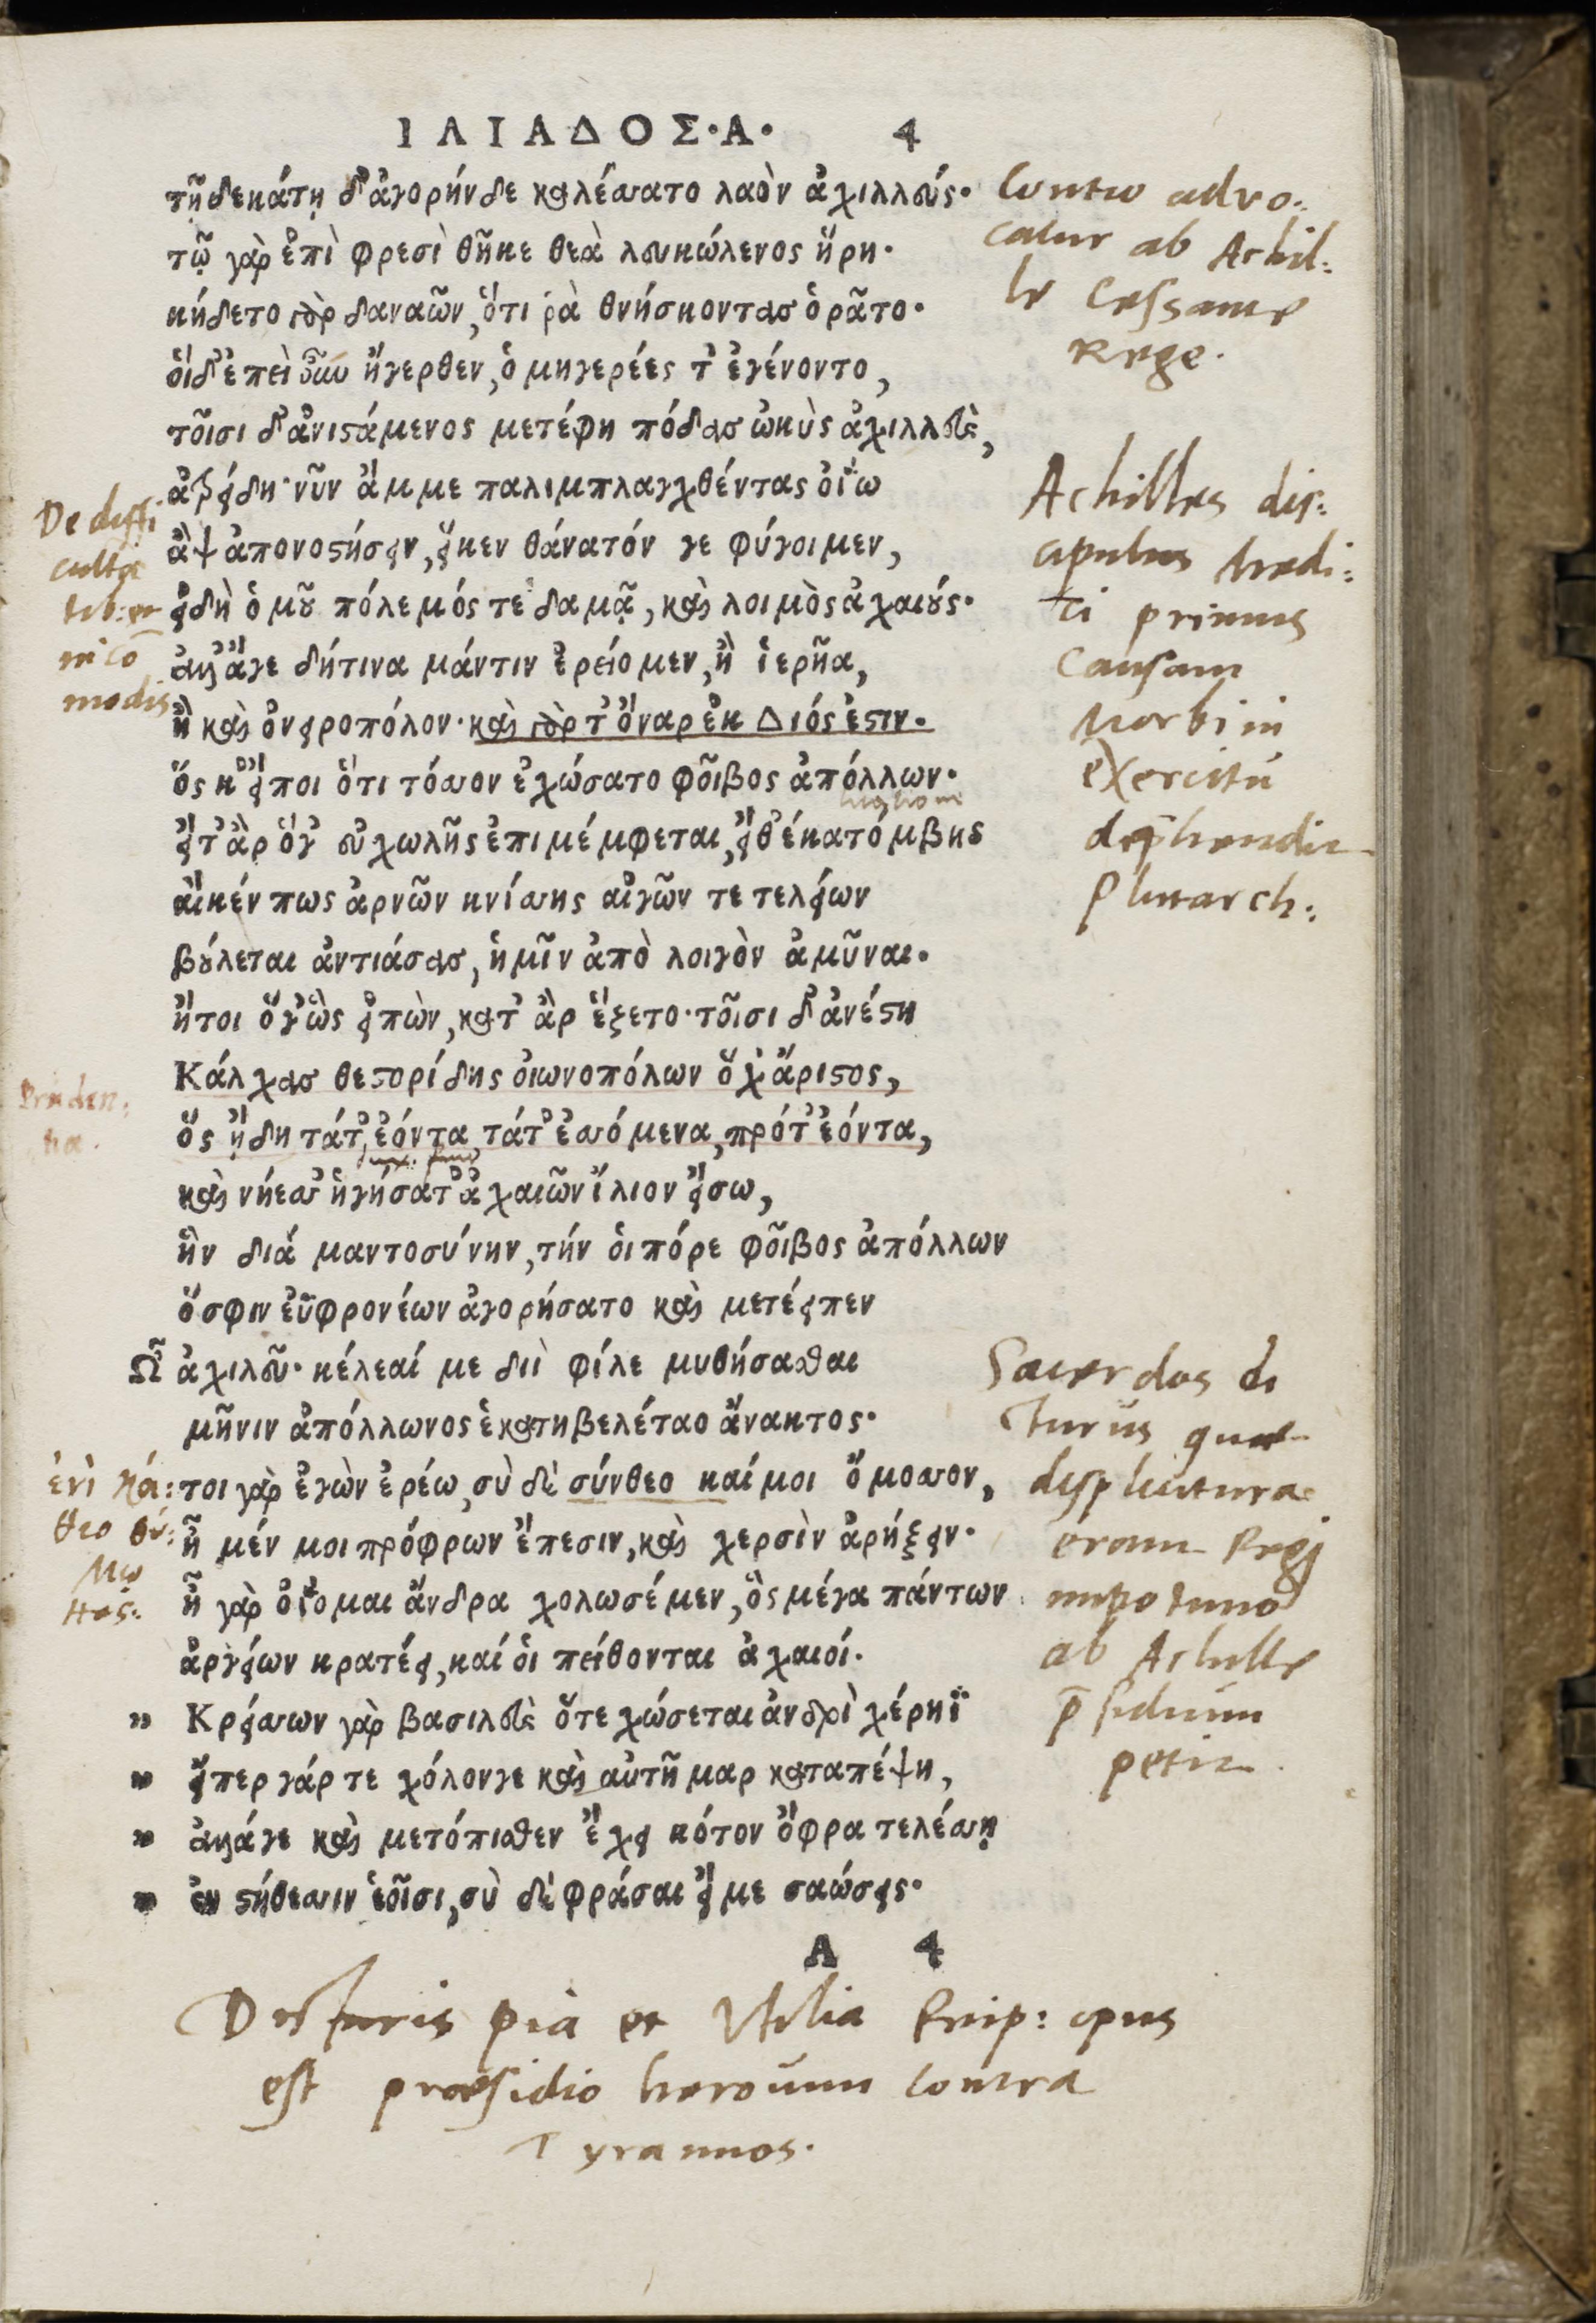 ΙΛΙΑΔΟΣ·Α· 4
τῇ δεκάτῃ δ' ἀγορήνδε καλέσσατο λαὸν ἀχιλλεύς·
τῷ γὰρ ἐπὶ φρεσὶ θῆκε θεὰ λευκώλενος ἥρη·
κήδετο γὰρ δαναῶν, ὅτι ῥὰ θνήσκοντας ὁρᾶτο·
οἱ δ' ἐπεὶ οὖν ἤγερθεν, ὁμηγερέες τ' ἐγένοντο,
τοῖσι δ' ἀνιστάμενος μετέφη πόδας ὠκὺς ἀχιλλεὺς,
ἀτρείδη· νῦν ἄμμε παλιμπλαγχθέντας ὀΐω
ἂψ ἀπονοστήσειν, εἴκεν θάνατόν γε φύγοιμεν,
εἰ δὴ ὁμοῦ πόλεμός τε δαμᾷ, καὶ λοιμὸς ἀχαιούς·
ἀλλ' ἄγε δή τινα μάντιν ἐρείομεν, ἢ ἱερῆα,
ἢ καὶ ὀνειροπόλον· καὶ γὰρ τ' ὄναρ ἐκ Διός ἐστιν·
ὅς κ' εἴποι ὅτι τόσσον ἐχώσατο φοῖβος ἀπόλλων·
εἴτ' ἂρ ὅγ' εὐχωλῆς ἐπιμέμφεται, εἴθ' ἑκατόμβης
αἴκέν πως ἀρνῶν κνίσσης αἰγῶν τε τελείων
βούλεται ἀντιάσας, ἡμῖν ἀπὸ λοιγὸν ἀμῦναι·
ἤτοι ὅγ' ὣς εἰπὼν, κατ' ἂρ ἕζετο· τοῖσι δ' ἀνέστη
Κάλχας θεστορίδης οἰωνοπόλων ὄχ' ἄριστος,
ὅς ᾔδη τάτ' ἐόντα τάτ' ἐσσόμενα, πρότ' ἐόντα,
καὶ νήεσσ' ἡγήσατ' ἀχαιῶν ἴλιον εἴσω,
ἣν διὰ μαντοσύνην, τήν οἱ πόρε φοῖβος ἀπόλλων
ὅσφιν ἐϋφρονέων ἀγορήσατο καὶ μετέειπεν
Ὦ ἀχιλεῦ· κέλεαί με διῒ φίλε μυθήσασθαι
μῆνιν ἀπόλλωνος ἑκατηβελέταο ἄνακτος·
τοι γὰρ ἐγὼν ἐρέω, σὺ δὲ σύνθεο καί μοι ὄμοσσον,
ἦ μέν μοι πρόφρων ἔπεσιν, καὶ χερσὶν ἀρήξειν·
ἦ γὰρ ὀΐομαι ἄνδρα χολωσέμεν, ὃς μέγα πάντων
ἀργείων κρατέει, καί οἱ πείθονται ἀχαιοί.
" Κρείσσων γὰρ βασιλεὺς ὅτε χώσεται ἀνδρὶ χέρηϊ
" εἴπερ γάρ τε χόλον γε καὶ αὐτῆμαρ καταπέψη,
" ἀλλάγε καὶ μετόπισθεν ἔχει κότον ὄφρα τελέσσῃ
" ἐν στήθεσσιν ἑοῖσι, σὺ δὲ φράσαι εἴ με σαώσεις·
A 4
Contio advo:
catur ab Achil:
le cessante
Rege.
Achilles dis:
cipulus medi:
ci primus
causam
morbi in
exercitu
deprehendit
Plutarch:
Sacerdos di
cturus quae
displicitura
erant Regi
ab Achille
p̄sidium
petit
De diffi
culta
tib: et
incō
modis
Pruden:
tia.
Dicturis pia et utilia Reip: opus
est praesidio heroum contra
Tyrannos.